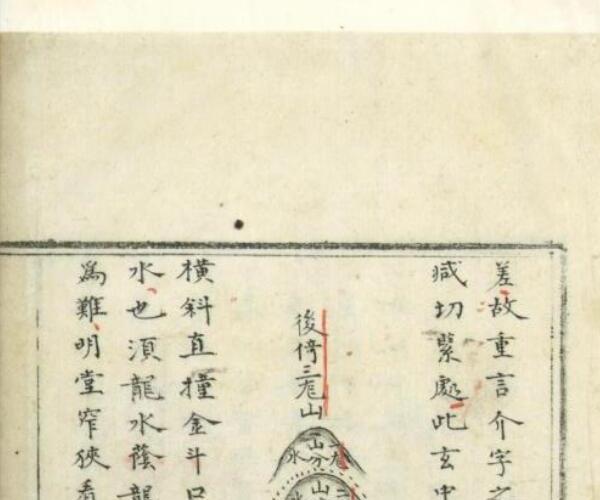 差故重言介字之
緘切緊處此玄中
後倚三尨山
山分水
山
橫斜直撞金斗口
水也須龍水蔭龍
為難明堂窄狹看